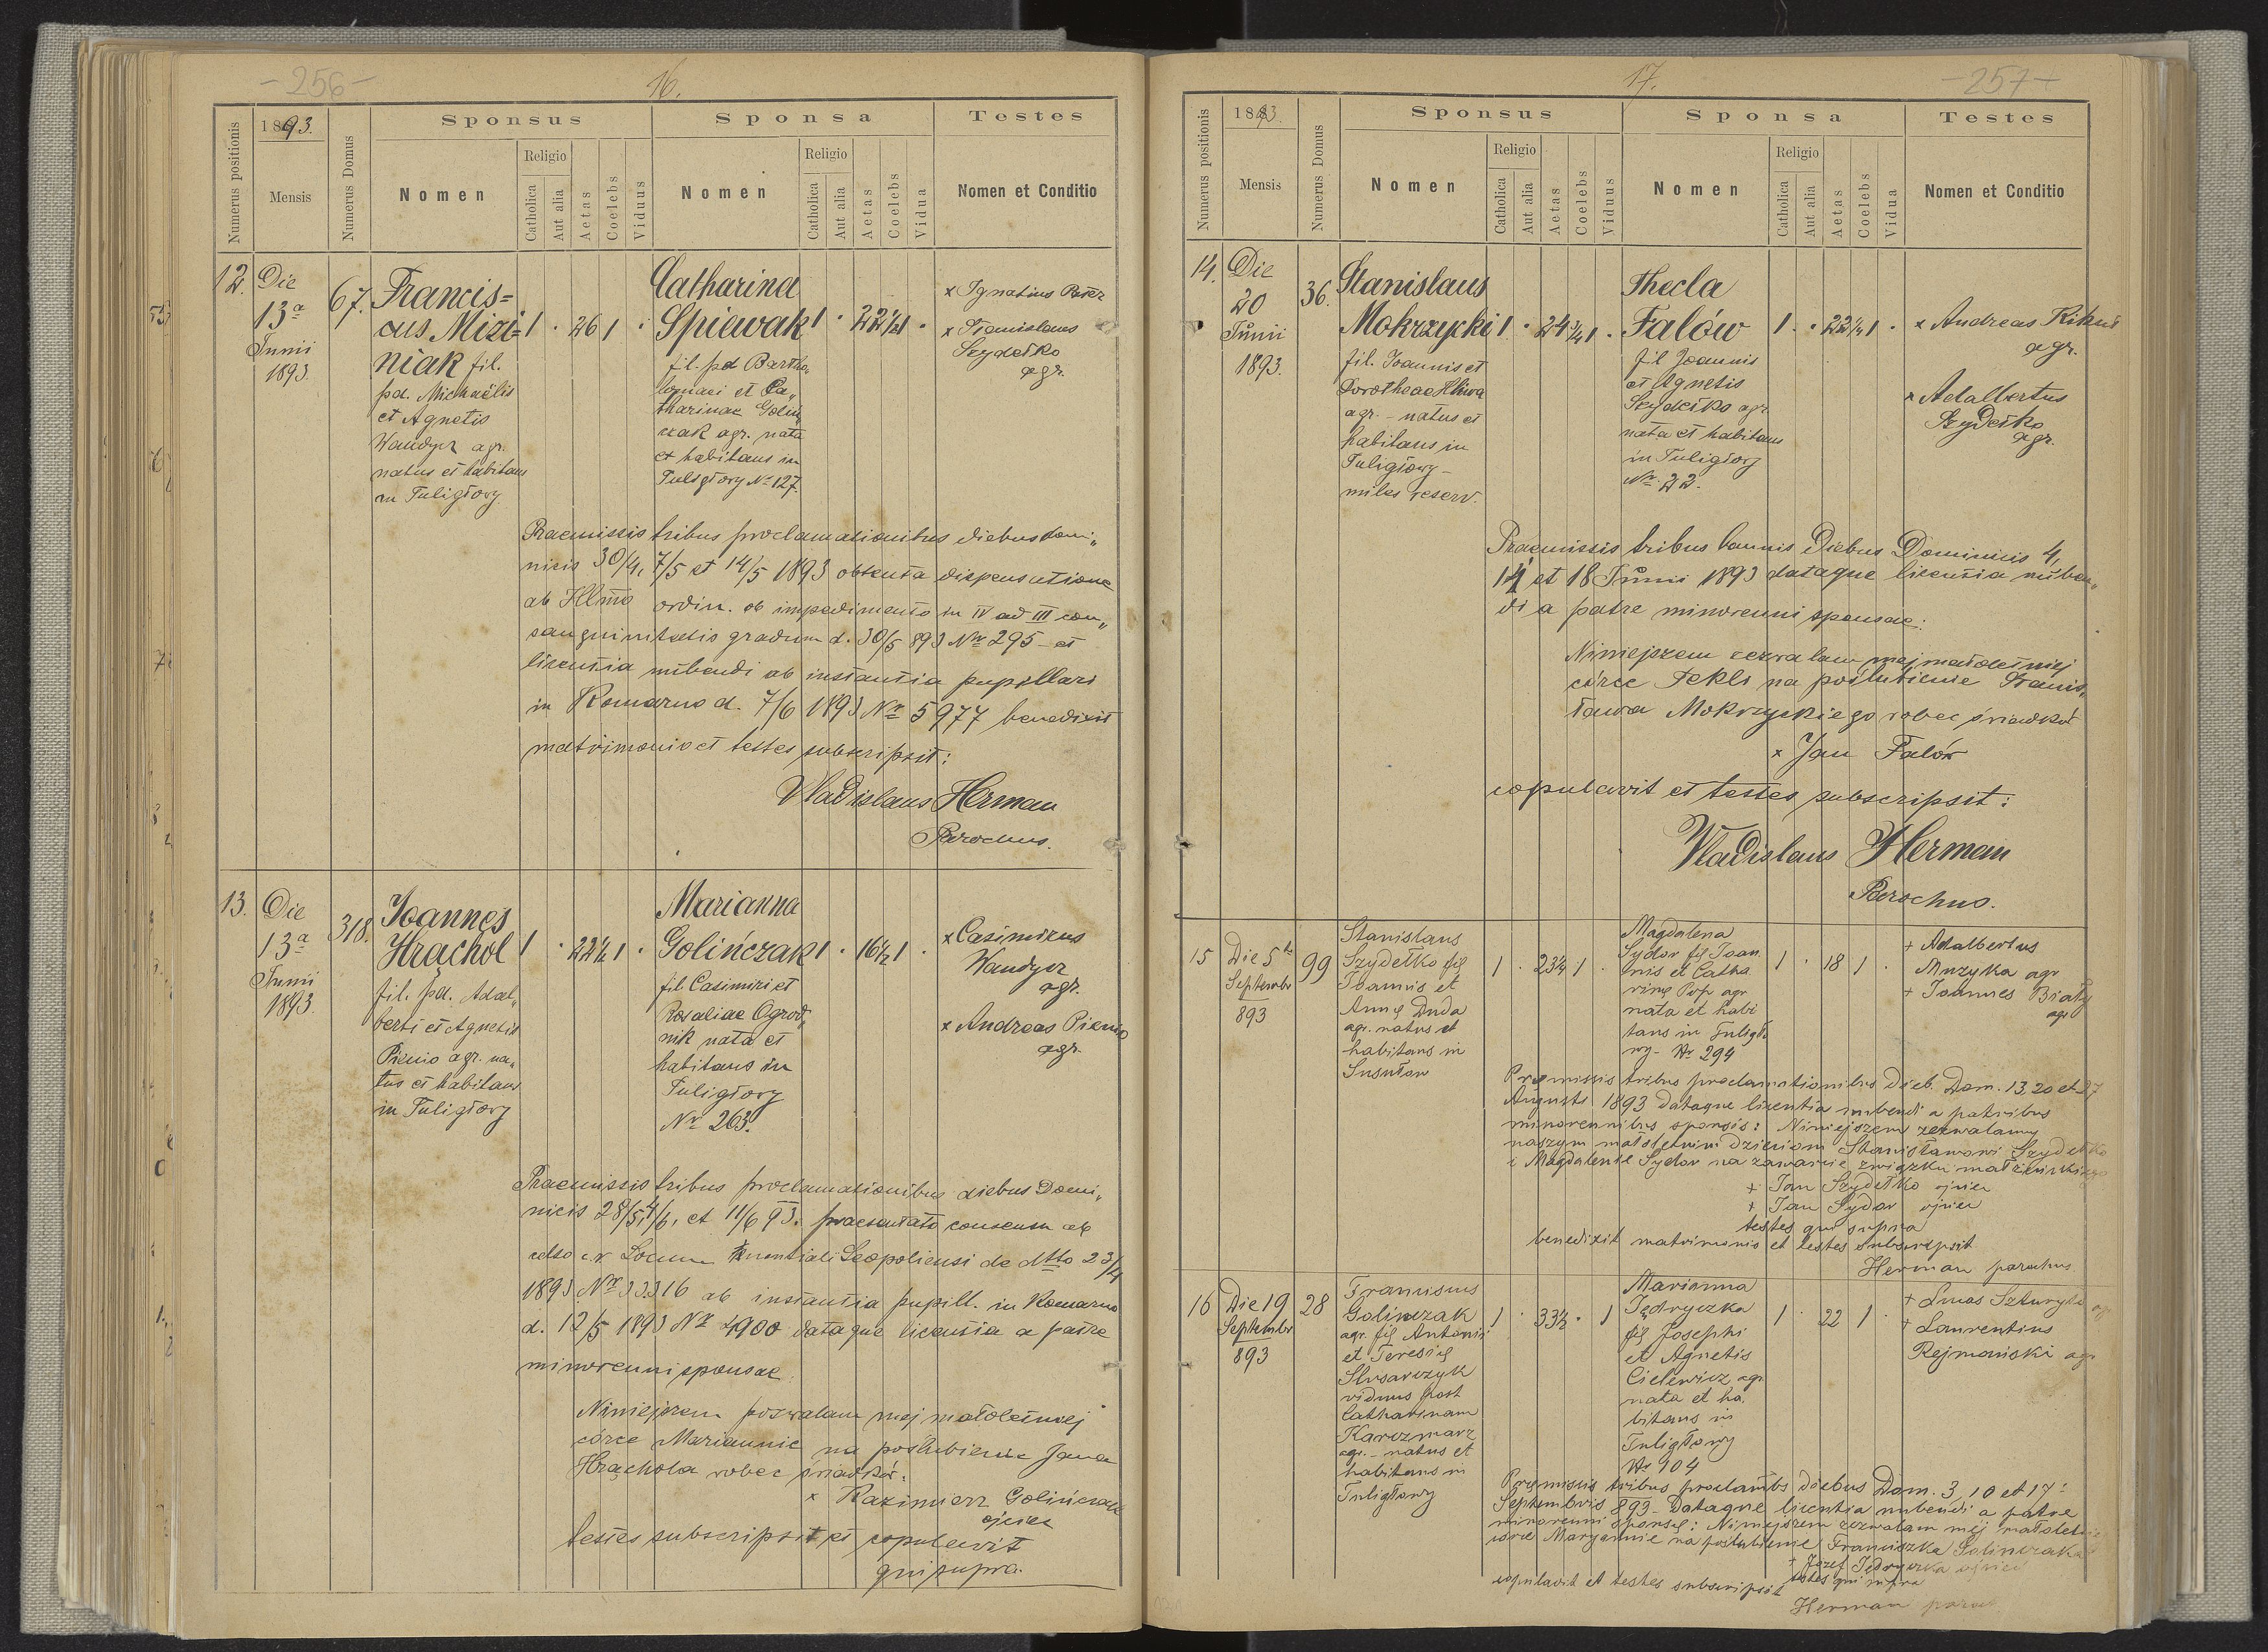 -256-
16.
Numerus positionis
1893.
Mensis
Numerus Domus
Sponsus
Nomen
Religio
Catholica
Aut alia
Aetas
Coelebs
Viduus
Sponsa
Nomen
Religio
Catholica
Aut alia
Aetas
Coelebs
Vidua
Testes
Nomen et Conditio
12.
Die
13ª
Junii
1893.
67.
Francis=
cus Mizi=
niak fil.
pd. Michaëlis
et Agnetis
Wandycz agr.
natus et habitans
in Tuligłowy
1 · 26 1 ·
Catharina
Spiewak
fil. pd Bartho„
lomaei et Ca„
tharinae Goliń„
czak agr. nata
et habitans in
Tuligłowy Nr 127.
1 · 22½ 1 ·
x Ignatius
x Stanislaus
Szydełko
agr.
Praemissis tribus proclamationibus diebus domi„
nicis 30/4, 7/5 et 14/5 1893 obtenta dispensatione
ab Illmo ordin. ob impedimento in IV ad III con„
sanguinitatis gradum d. 30/5 893 Nr 295 - et
licentia nubendi ab instantia pupillari
in Komarno d. 7/6 1893 Nr 5977 benedixit
matrimonio et testes subscripsit:
Vladislaus Herman
Parochus.
13.
Die
13ª
Junii
1893.
318.
Joannes
Hrachol
fil. pd. Adal„
berti et Agnetis
Pienio agr. na„
tus et habitans
in Tuligłowy
1 · 22½ 1 ·
Marianna
Golińczak
fil. Casimiri et
Rosaliae Ogrod„
nik nata et
habitans in
Tuligłowy
Nr 263.
1 · 16½ 1 ·
x Casimirus
Wandycz
agr.
x Andreas Pienio
agr.
Praemissis tribus proclamationibus diebus Domi„
nicis 28/5, 4/6, et 11/6 93. praesentato consensu ab
celso c.r. Locum tenentiali Leopoliensi de dtto 23/4
1893 Nr 33316 ab instantia pupill. in Komarno
d. 12/5 1893 Nr 4900 dataque licentia a patre
minorenni sponsae:
Niniejszem pozwalam mej małoletniej
córce Mariannie na poślubienie Jana
Hrachola wobec świadków.
x Kazimierz Golińczak
ojciec
testes subscripsit et copulavit
qui supra.
17.
-257-
Numerus positionis
1893.
Mensis
Numerus Domus
Sponsus
Nomen
Religio
Catholica
Aut alia
Aetas
Coelebs
Viduus
Sponsa
Nomen
Religio
Catholica
Aut alia
Aetas
Coelebs
Vidua
Testes
Nomen et Conditio
14.
Die
20
Junii
1893.
36.
Stanislaus
Mokrzycki
fil. Joannis et
Dorotheae Hliwa
agr. - natus et
habitans in
Tuligłowy -
miles reserv.
1 · 24¾ 1 ·
Thecla
Falów
fil Joannis
et Agnetis
Szydełko agr.
nata et habitans
in Tuligłowy
Nr. 22.
1 · 22½ 1 ·
x Andreas Kikus
agr.
x Adalbertus
Szydełko
agr.
Praemissis tribus bannis Diebus Dominicis 4,
11 et 18 Junii 1893 dataque licentia nuben„
di a patre minorenni sponsae:
Niniejszem zezwalam mej małoletniej
córce Tekli na poślubienie Stanis„
ława Mokrzyckiego wobec świadków
x Jan Falów
copulavit et testes subscripsit:
Vladislaus Herman
Parochus.
15
Die 5ta
Septembr
893
99
Stanislaus
Szydełko fil
Joannis et
Annę Duda
agr. natus et
habitans in
Susułow
1 · 23½ 1 ·
Magdalena
Sydor fil Joan
nis et Catha
rinę Pop agr
nata et habi
tans in Tuligło
wy - Nr 294
1 · 18 1 ·
+ Adalbertus
Muzyka agr
+ Joannes Biały
agr
Pręmissis tribus proclamationibus dieb. Dom. 13, 20 et 27
Augusti 1893 dataque licentia nubendi a patribus
minorennibus sponsis: Niniejszem zezwalamy
naszym małoletnim dzieciom Stanisławowi Szydełko
i Magdalenie Sydor na zawarcie związku małżeńskiego
+ Jan Szydełko ojciec
+ Jan Sydor ojciec
testes qui supra
benedixit matrimonio et testes subscripsit
Herman parochus
16
Die 19
Septembr
893
28
Franciscus
Golińczak
agr. fil Antonii
et Teresię
Slusarczyk
viduus post
Catharinam
Karczmarz
agr. - natus et
habitans in
Tuligłowy
1 · 33½ · 1
Marianna
Jędryczka
fil Josephi
et Agnetis
Cielewicz agr
nata et ha
bitans in
Tuligłowy
Nr 104
1 · 22 1 ·
+ Lucas Szturyło agr
+ Laurentius
Rejmański agr
Pręmissis tribus proclambs diebus Dom. 3, 10 et 17
Septembris 893 - dataque licentia nubendi a patre
minorenni sponsę: Niniejszem zezwalam mej małoletniej
córce Maryannie na poślubienie Franciszka Golińczaka
+ Józef Jędryczka ojciec
testes qui supra
copulavit et testes subscripsit
Herman paroch